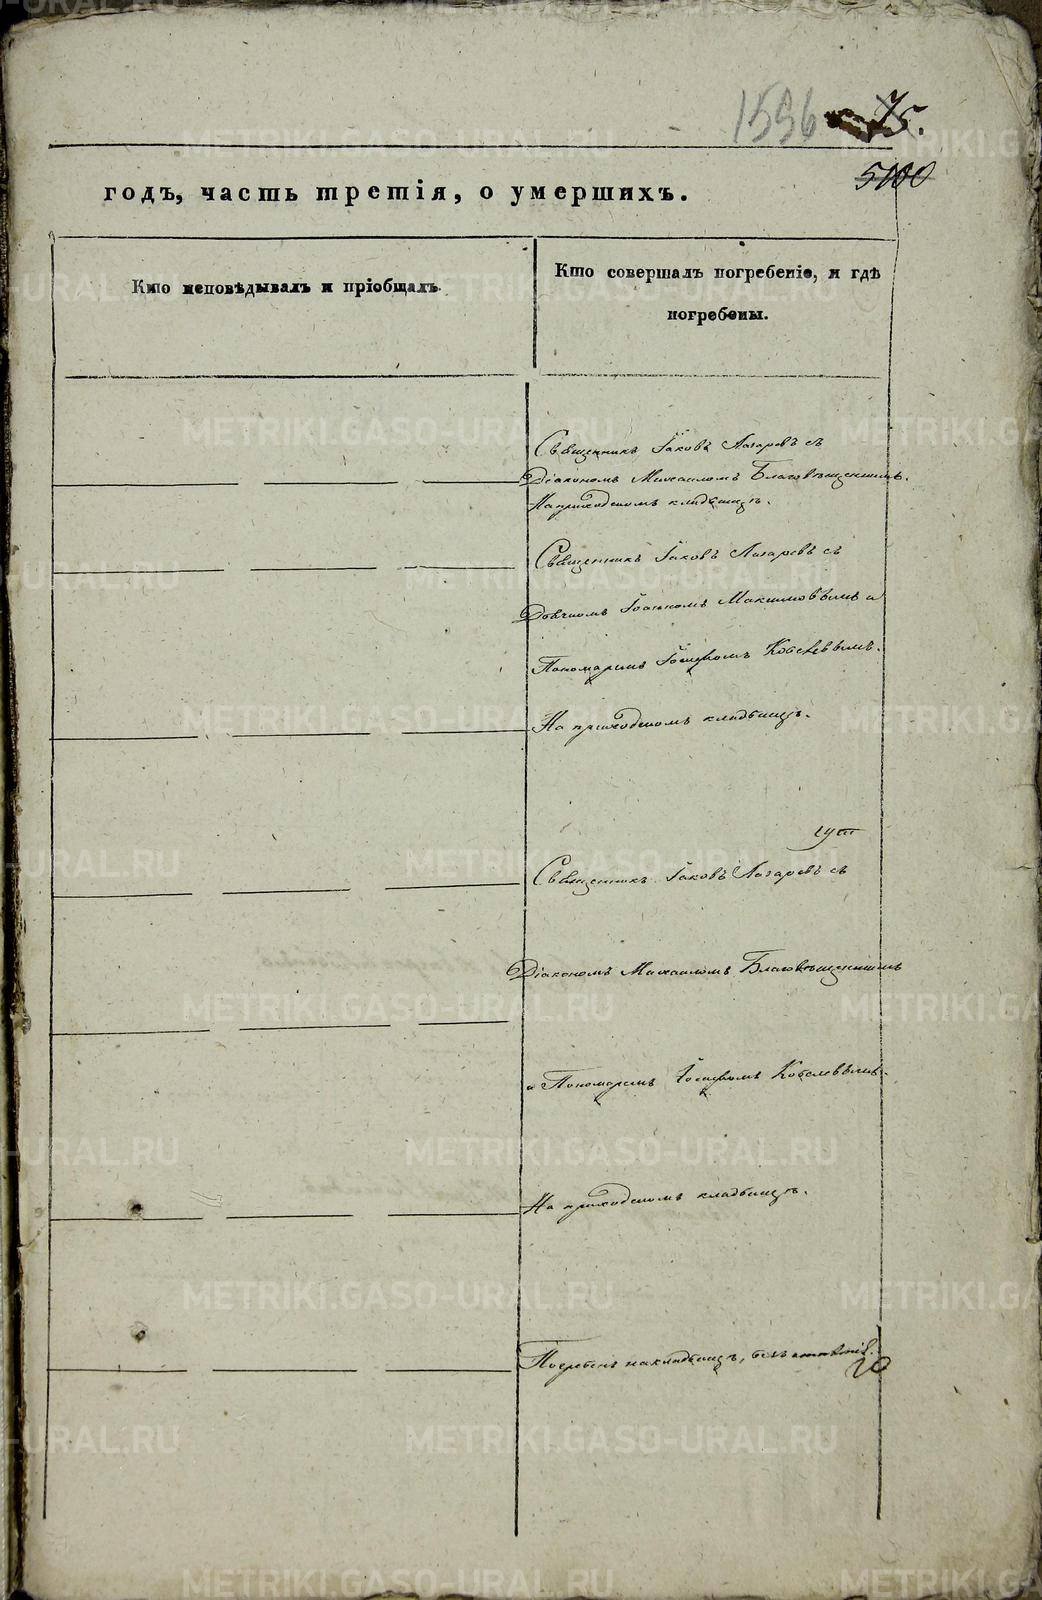 1556
75.
5100
годъ, часть третія, о умершихъ.
Кто исповѣдывалъ и пріобщалъ.
Кто совершалъ погребеніе, и гдѣ
погребены.
Священникъ Іаковъ Лазаревъ съ
Діакономъ Михаиломъ Благовѣщенскимъ.
На приходскомъ кладбищѣ.
Священникъ Іаковъ Лазаревъ съ
Дьячкомъ Іоанномъ Максимовымъ и
Пономаремъ Іосифомъ Кобелевымъ.
На приходскомъ кладбищѣ.
Священникъ Іаковъ Лазаревъ съ
Діакономъ Михаиломъ Благовѣщенскимъ
и Пономаремъ Іосифомъ Кобелевымъ.
На приходскомъ кладбищѣ.
Погребенъ на кладбищѣ, безъ отпѣтія.
METRIKI.GASO-URAL.RU